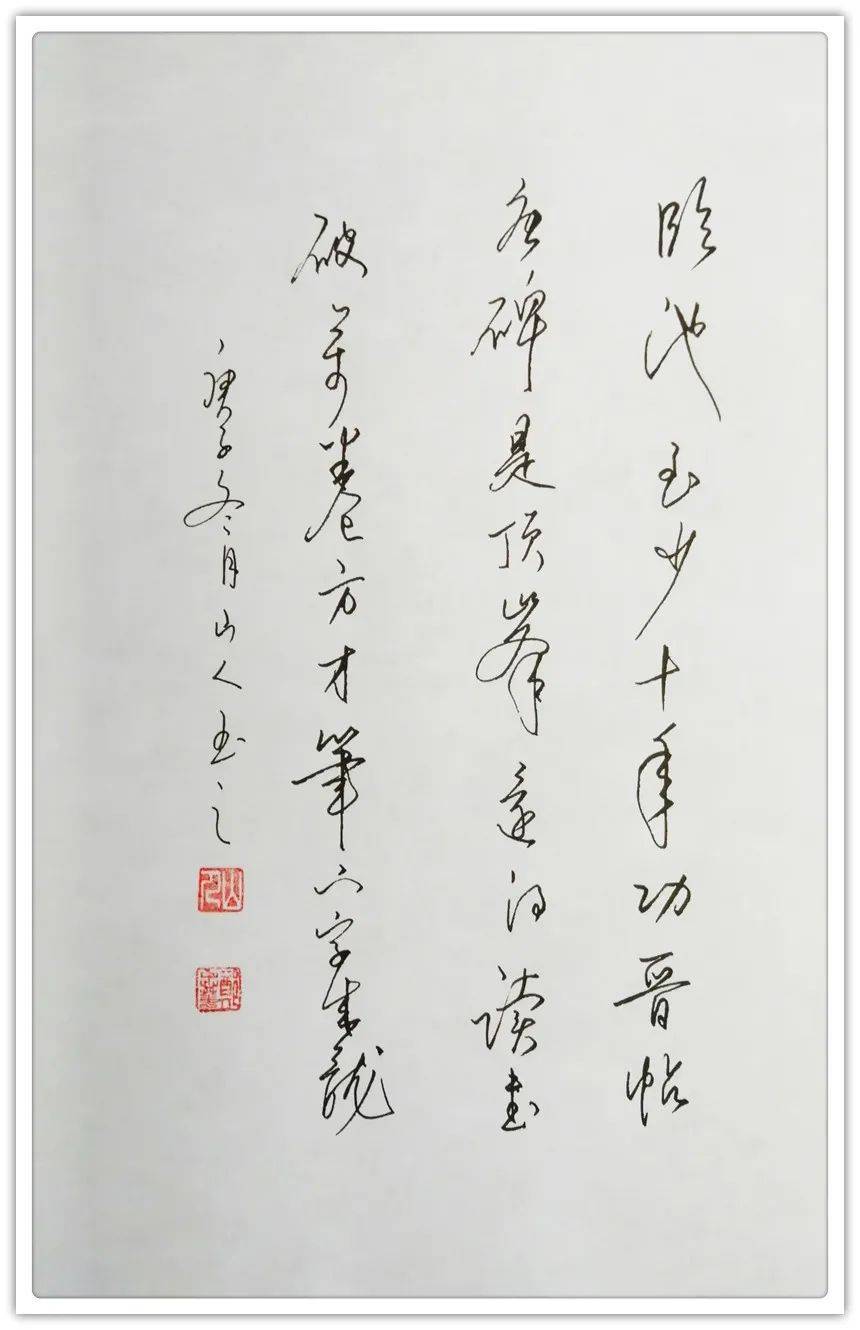 临池至少十年功晋帖
唐碑是顶峯还得读书
破万卷方才筆下字成龍
庚子冬月山人书之